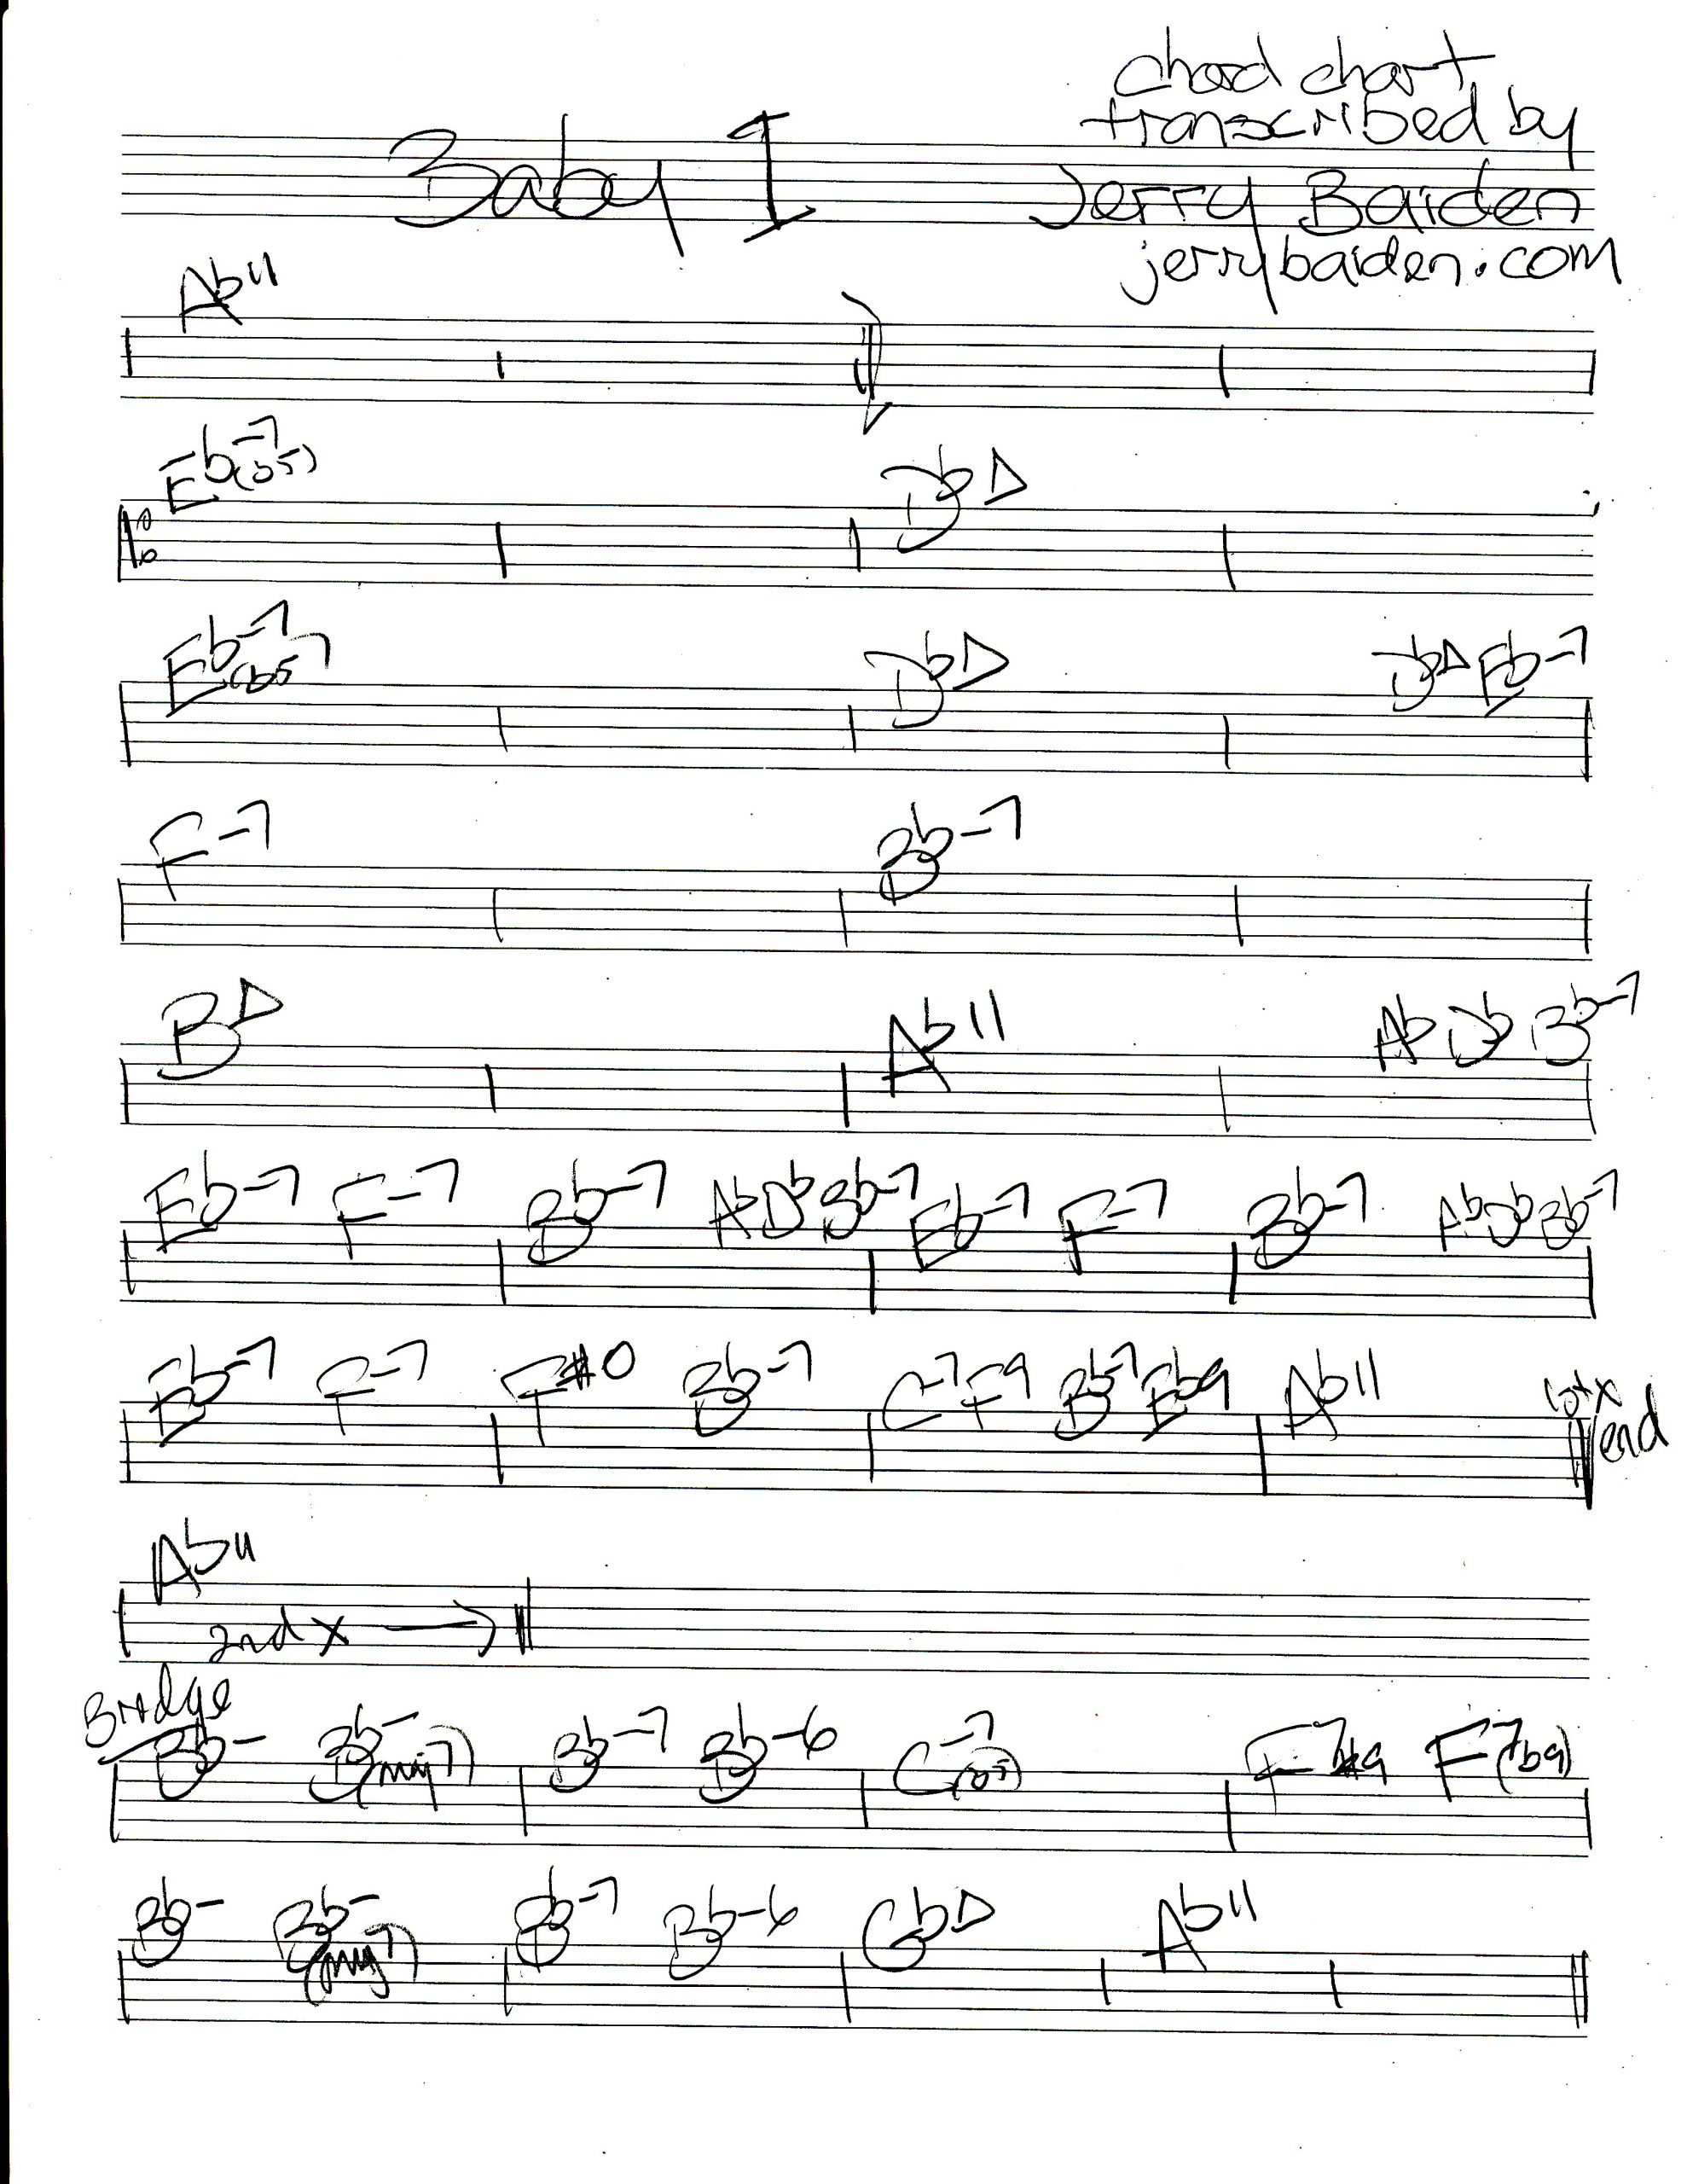 chord chart
transcribed by
Baby I
Jerry Baiden
jerrybaiden.com
Ab11
Eb-7(b5) DbΔ
Eb-7(b5) DbΔ DbΔ Eb-7
F-7 Bb-7
BΔ Ab11 Ab Db Bb-7
Eb-7 F-7 Bb-7 Ab Db Bb-7 Eb-7 F-7 Bb-7 Ab Db Bb-7
Eb-7 F-7 F#o Bb-7 C-7 F9 Bb-7 Eb9 Ab11 1st x
end
Ab11
2nd x →
Bridge
Bb- Bb-(maj7) Bb-7 Bb-6 C-7(b5) F7#9 F(7b9)
Bb- Bb-(maj7) Bb-7 Bb-6 GbΔ Ab11